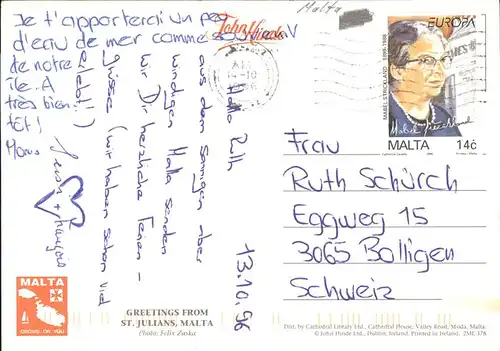 Malta
Je t'apporterai un peu
d'eau de mer comme souvenir
de notre
île. A
très bientôt!
John Hinde
EUROPA
MABEL STRICKLAND 1899-1988
Mabel Strickland
MALTA 14c
13.10.96
Hallo Ruth
aus dem sonnigen aber
windigen Malta senden
wir Dir herzliche Ferien-
grüsse (wir haben schon viel
erlebt!)
Frau
Ruth Schürch
Eggweg 15
3065 Bolligen
Schweiz
MALTA
GROWS ON YOU
GREETINGS FROM
ST. JULIANS, MALTA
Photo: Felix Zaska
Dist. by Cathedral Library Ltd., Cathedral House, Valley Road, Msida, Malta.
© John Hinde Ltd., Dublin, Ireland. Printed in Ireland. 2ME 378